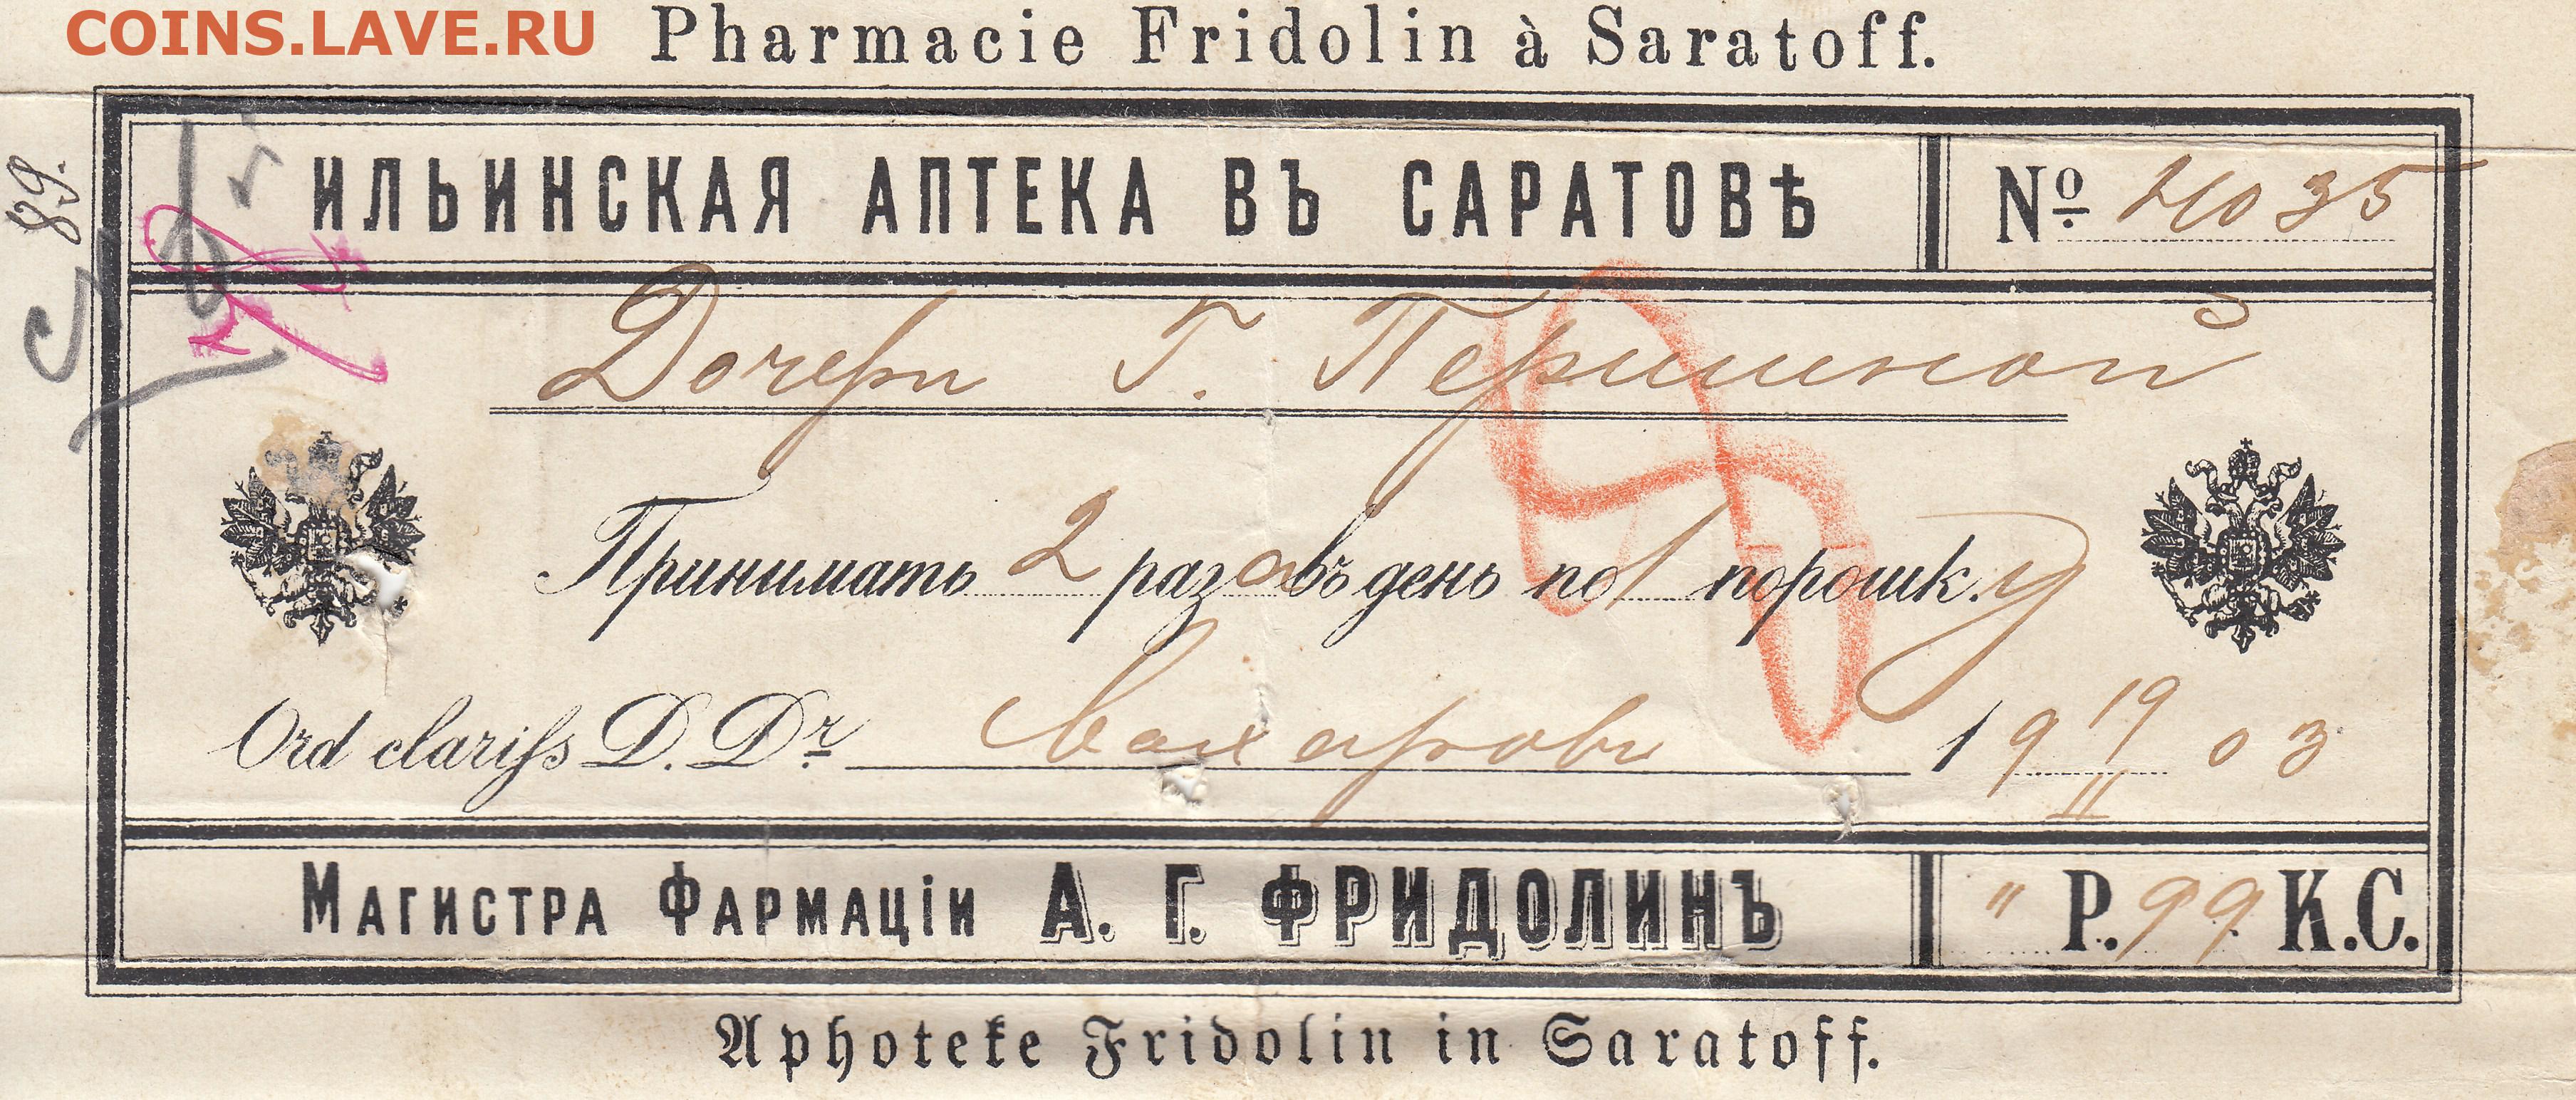 COINS.LAVE.RU
Pharmacie Fridolin à Saratoff.
89.
ИЛЬИНСКАЯ АПТЕКА ВЪ САРАТОВѢ
№ 4035
Дочери Г. Першиной
Принимать 2 раза въ день по 1 порошк.у
Ord clariſs D. Dr.
19 19/II 03
МАГИСТРА ФАРМАЦІИ А. Г. ФРИДОЛИНЪ
" Р. 99 К.С.
Aphoteke Fridolin in Saratoff.